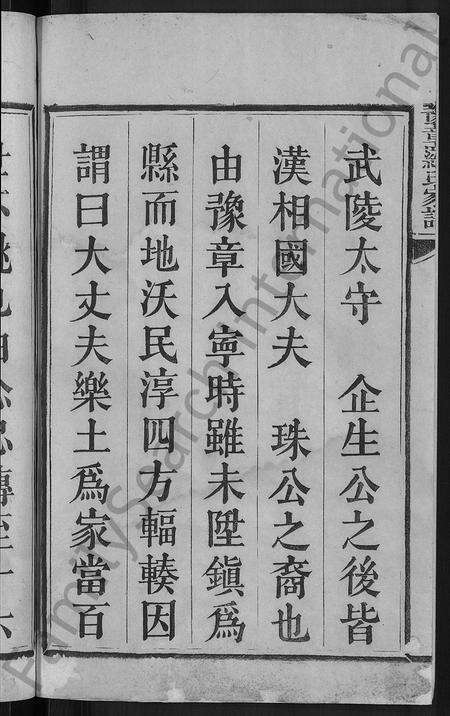 武陵太守　企生公之後皆
漢相國大夫　珠公之裔也
由豫章入寧時雖未陞鎮爲
縣而地沃民淳四方輻輳因
謂曰大丈夫樂土爲家當百
豫章羅氏家譜
FamilySearch International